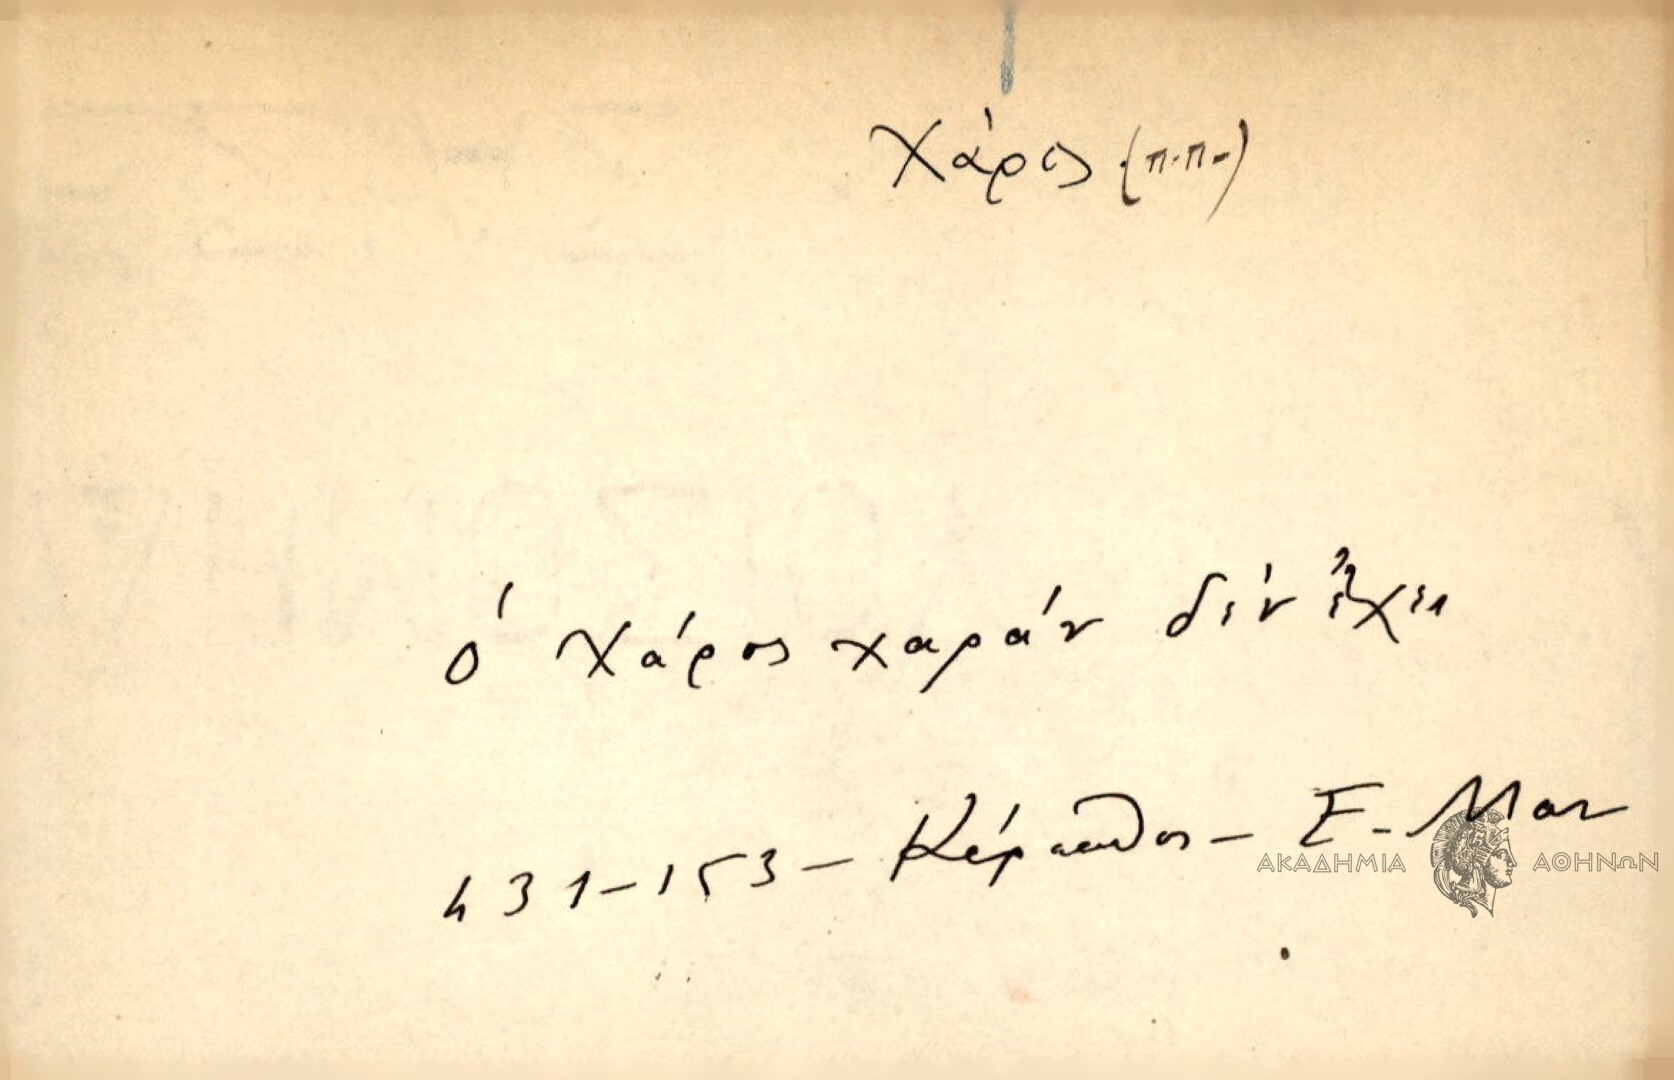 Χάρος (π.π.)
ὁ Χάρος χαράν δέν ἔχει
431-153 - Κάρπαθος - Ε. Μαν
ΑΚΑΔΗΜΙΑ ΑΘΗΝΩΝ